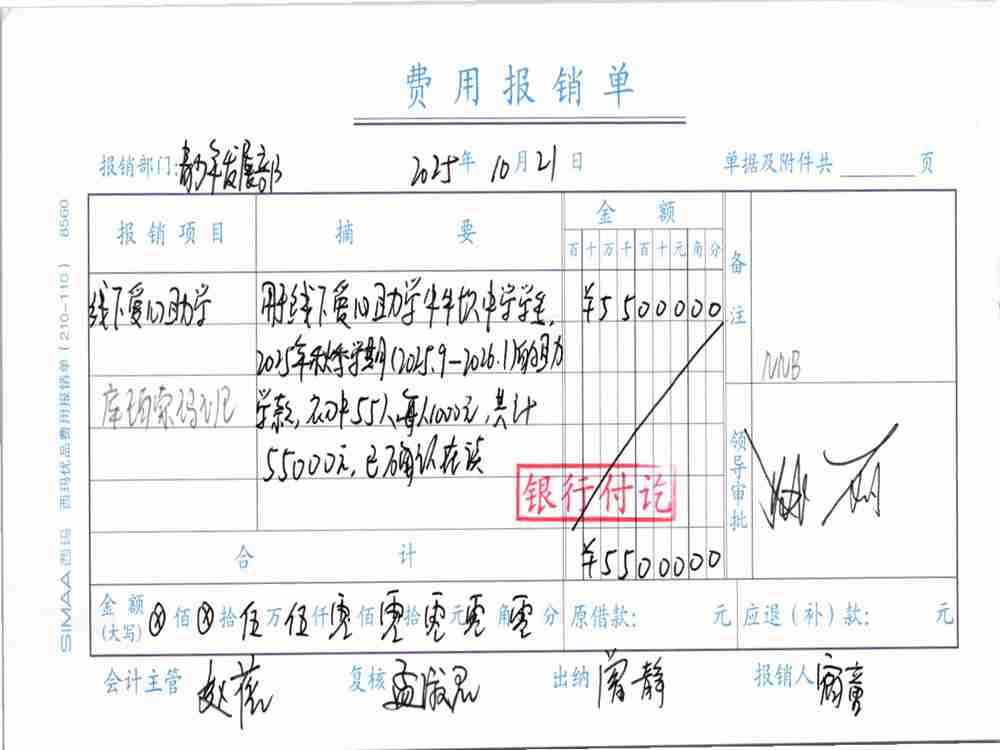 费用报销单
报销部门: 青少年发展部 2025年 10月21日 单据及附件共 页
报销项目 摘要 金额 备注
百十万千百十元角分
线下爱心助学 用于线下爱心助学牛牛饮中学学生, ¥5500000
2025年秋季学期(2025.9-2026.1)的助力
学款, 初中55人,每人1000元,共计
55000元,已确认在读
NNB
银行付讫
领导审批
合计 ¥5500000
金额(大写) ⊗佰⊗拾伍万伍仟零佰零拾零元零角零分 原借款: 元 应退(补)款: 元
会计主管 赵 复核 孟 出纳 静 报销人
SIMAA西玛 西玛优品费用报销单(210-110) 8560